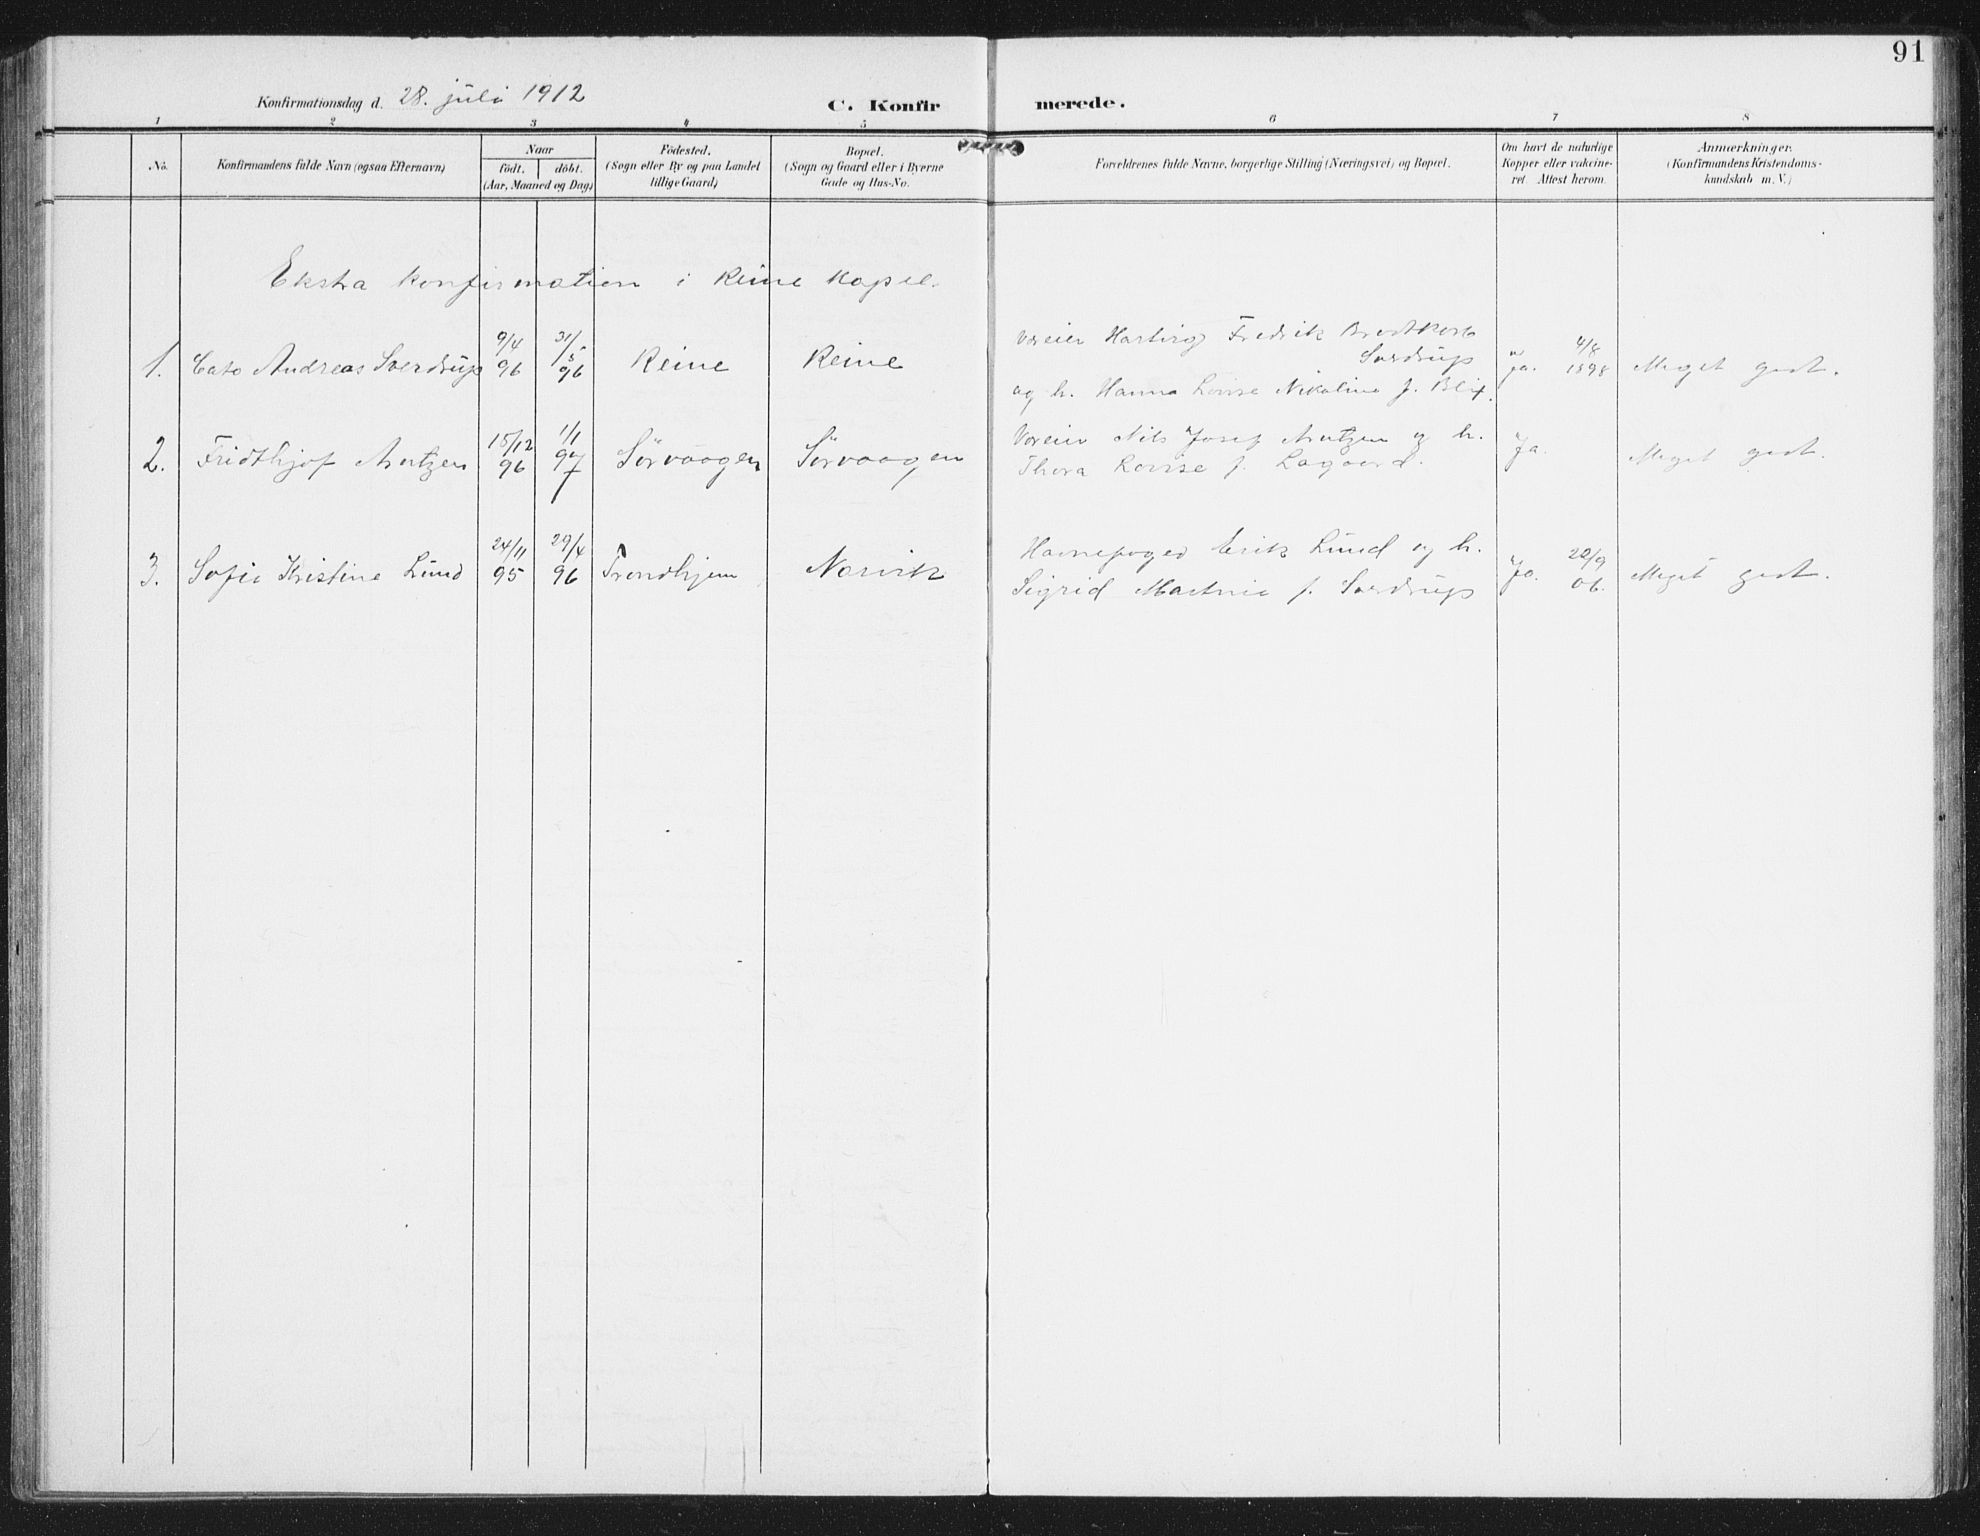 91
Konfirmationsdag d. 28. juli 1912
C. Konfirmerede.
1 2 3 4 5 6 7 8
No.
Konfirmandens fulde Navn (ogsaa Efternavn)
Naar
födt. döbt.
(Aar, Maaned og Dag)
Födested.
(Sogn eller By og paa Landet
tillige Gaard)
Bopæl.
(Sogn og Gaard eller i Byerne
Gade og Hus-No.
Forældrenes fulde Navne, borgerlige Stilling (Næringsvei) og Bopæl.
Om havt de naturlige
Kopper eller vakcine-
ret. Attest herom.
Anmærkninger.
(Konfirmandens Kristendoms-
kundskab m. V.)
Ekstra konfirmation i Reine kapel.
1. Cato Andreas Sverdrup 9/4 96 31/5 96 Reine Reine
Væreier Hartvig Fredrik Brodtkorb
Sverdrup
og h. Hanna Lovise Nikoline f. Blix.
Ja. 4/8 1898 Meget godt.
2. Fridthjof Arntzen 15/12 96 1/1 97 Sörvaagen Sörvaagen
Væreier Nils Josef Arntzen og h.
Thora Lovise f. Lagaard.
Ja. Meget godt.
3. Sofie Kristine Lund 24/11 95 29/4 96 Trondhjem Narvik
Havnefoged Erik Lund og h.
Sigrid Martnie f. Sverdrup
Ja. 20/9 06. Meget godt.